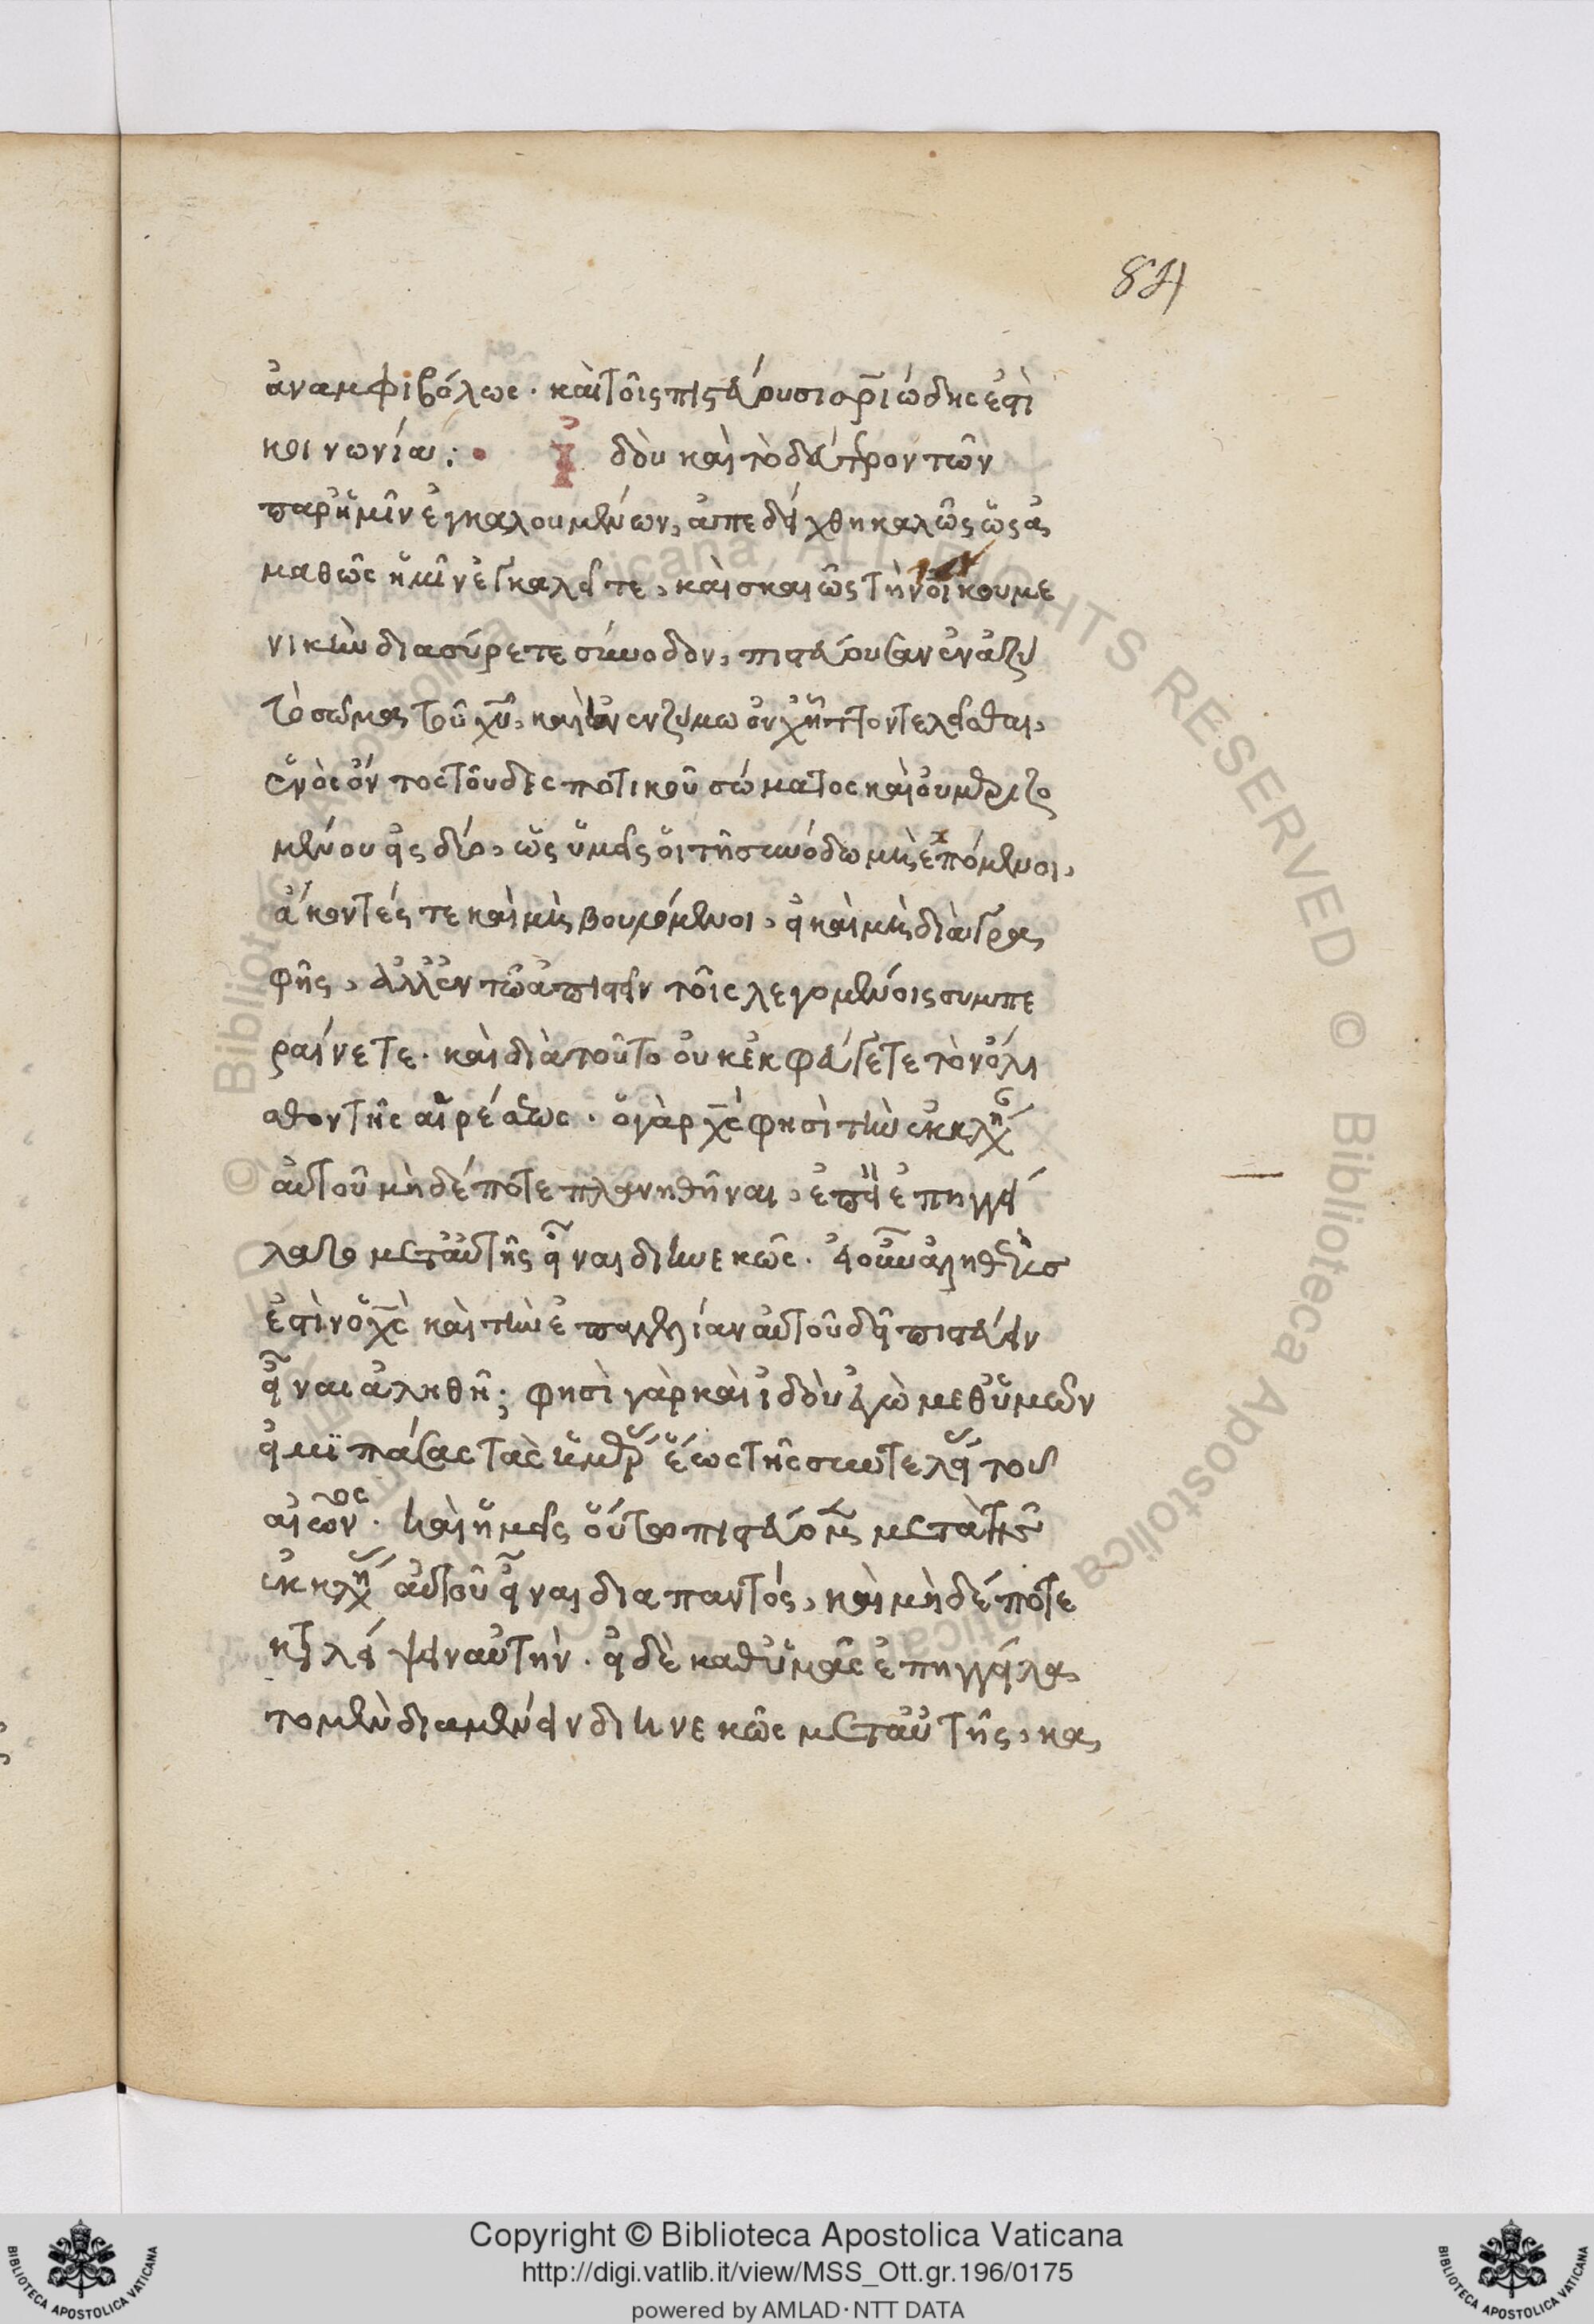 84
ἀναμφιβόλως · καὶ τοῖς πιστεύουσι σ͞ριώδης ἐστὶ
κοινωνία : • Ἰδοὺ καὶ τὸ δεύτερον τῶν
παρ' ἡμῖν ἐγκαλουμένων, ἀπεδείχθη καλῶς ὡς ἀ
μαθῶς ἡμῖν ἐγκαλεῖτε, καὶ σκαιῶς τὴν οἰκουμε
νικὴν διασύρετε σύνοδον, πιστεύουσαν ἐν ἀζύ
τὸ σῶμα τοῦ χ͞υ, καὶ ἐν ἐνζύμω οὐχ ἧττον τελεῖσθαι,
ἑνὸς ὄντος τοῦ δεσποτικοῦ σώματος καὶ οὐ μεριζο
μένου εἰς δύο, ὡς ὑμεῖς οἱ τῆ συνόδω μὴ ἑπόμενοι,
ἄκοντές τε καὶ μὴ βουλόμενοι, εἰ καὶ μὴ διὰ γρα
φῆς, ἀλλ' ἐν τῶ ἀπιστεῖν τοῖς λεγομένοις συμπε
ραίνετε · καὶ διὰ τοῦτο οὐκ ἐκφεύγετε τὸν ὄλι
σθον τῆς αἱρέσεως · ὁ γὰρ χ͞ς φησὶ τὴν ἐκκλη
αὐτοῦ μηδέποτε πλανηθῆναι, ἐπεὶ ἐπηγγεί
λατο μετ' αὐτῆς εἶναι διηνεκῶς · εἰ οὖν ἀληθὴς
ἐστὶν ὁ χ͞ς καὶ τὴν ἐπαγγελίαν αὐτοῦ δεῖ πιστεύειν
εἶναι ἀληθῆ ; φησὶ γὰρ καὶ ἰδοὺ ἐγὼ μεθ' ὑμῶν
εἰμὶ πάσας τὰς ἡμέρ ἕως τῆς συντελεί τοῦ
αἰῶνος · καὶ ἡμεῖς οὕτω πιστεύομ μετὰ τῆς
ἐκκλη αὐτοῦ εἶναι διαπαντός, καὶ μηδέποτε
καταλείψειν αὐτὴν · εἰ δὲ καθ' ὑμᾶς ἐπηγγείλα
το μὲν διαμένειν διηνεκῶς μετ' αὐτῆς, κα
© Biblioteca Apostolica Vaticana ALL RIGHTS RESERVED
Copyright © Biblioteca Apostolica Vaticana
http://digi.vatlib.it/view/MSS_Ott.gr.196/0175
powered by AMLAD·NTT DATA
BIBLIOTECA APOSTOLICA VATICANA
BIBLIOTECA APOSTOLICA VATICANA